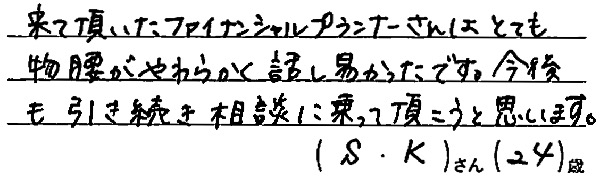 来て頂いたファイナンシャルプランナーさんはとても
物腰がやわらかく話し易かったです。今後
も引き続き相談に乗って頂こうと思います。
(S・K)さん(24)歳